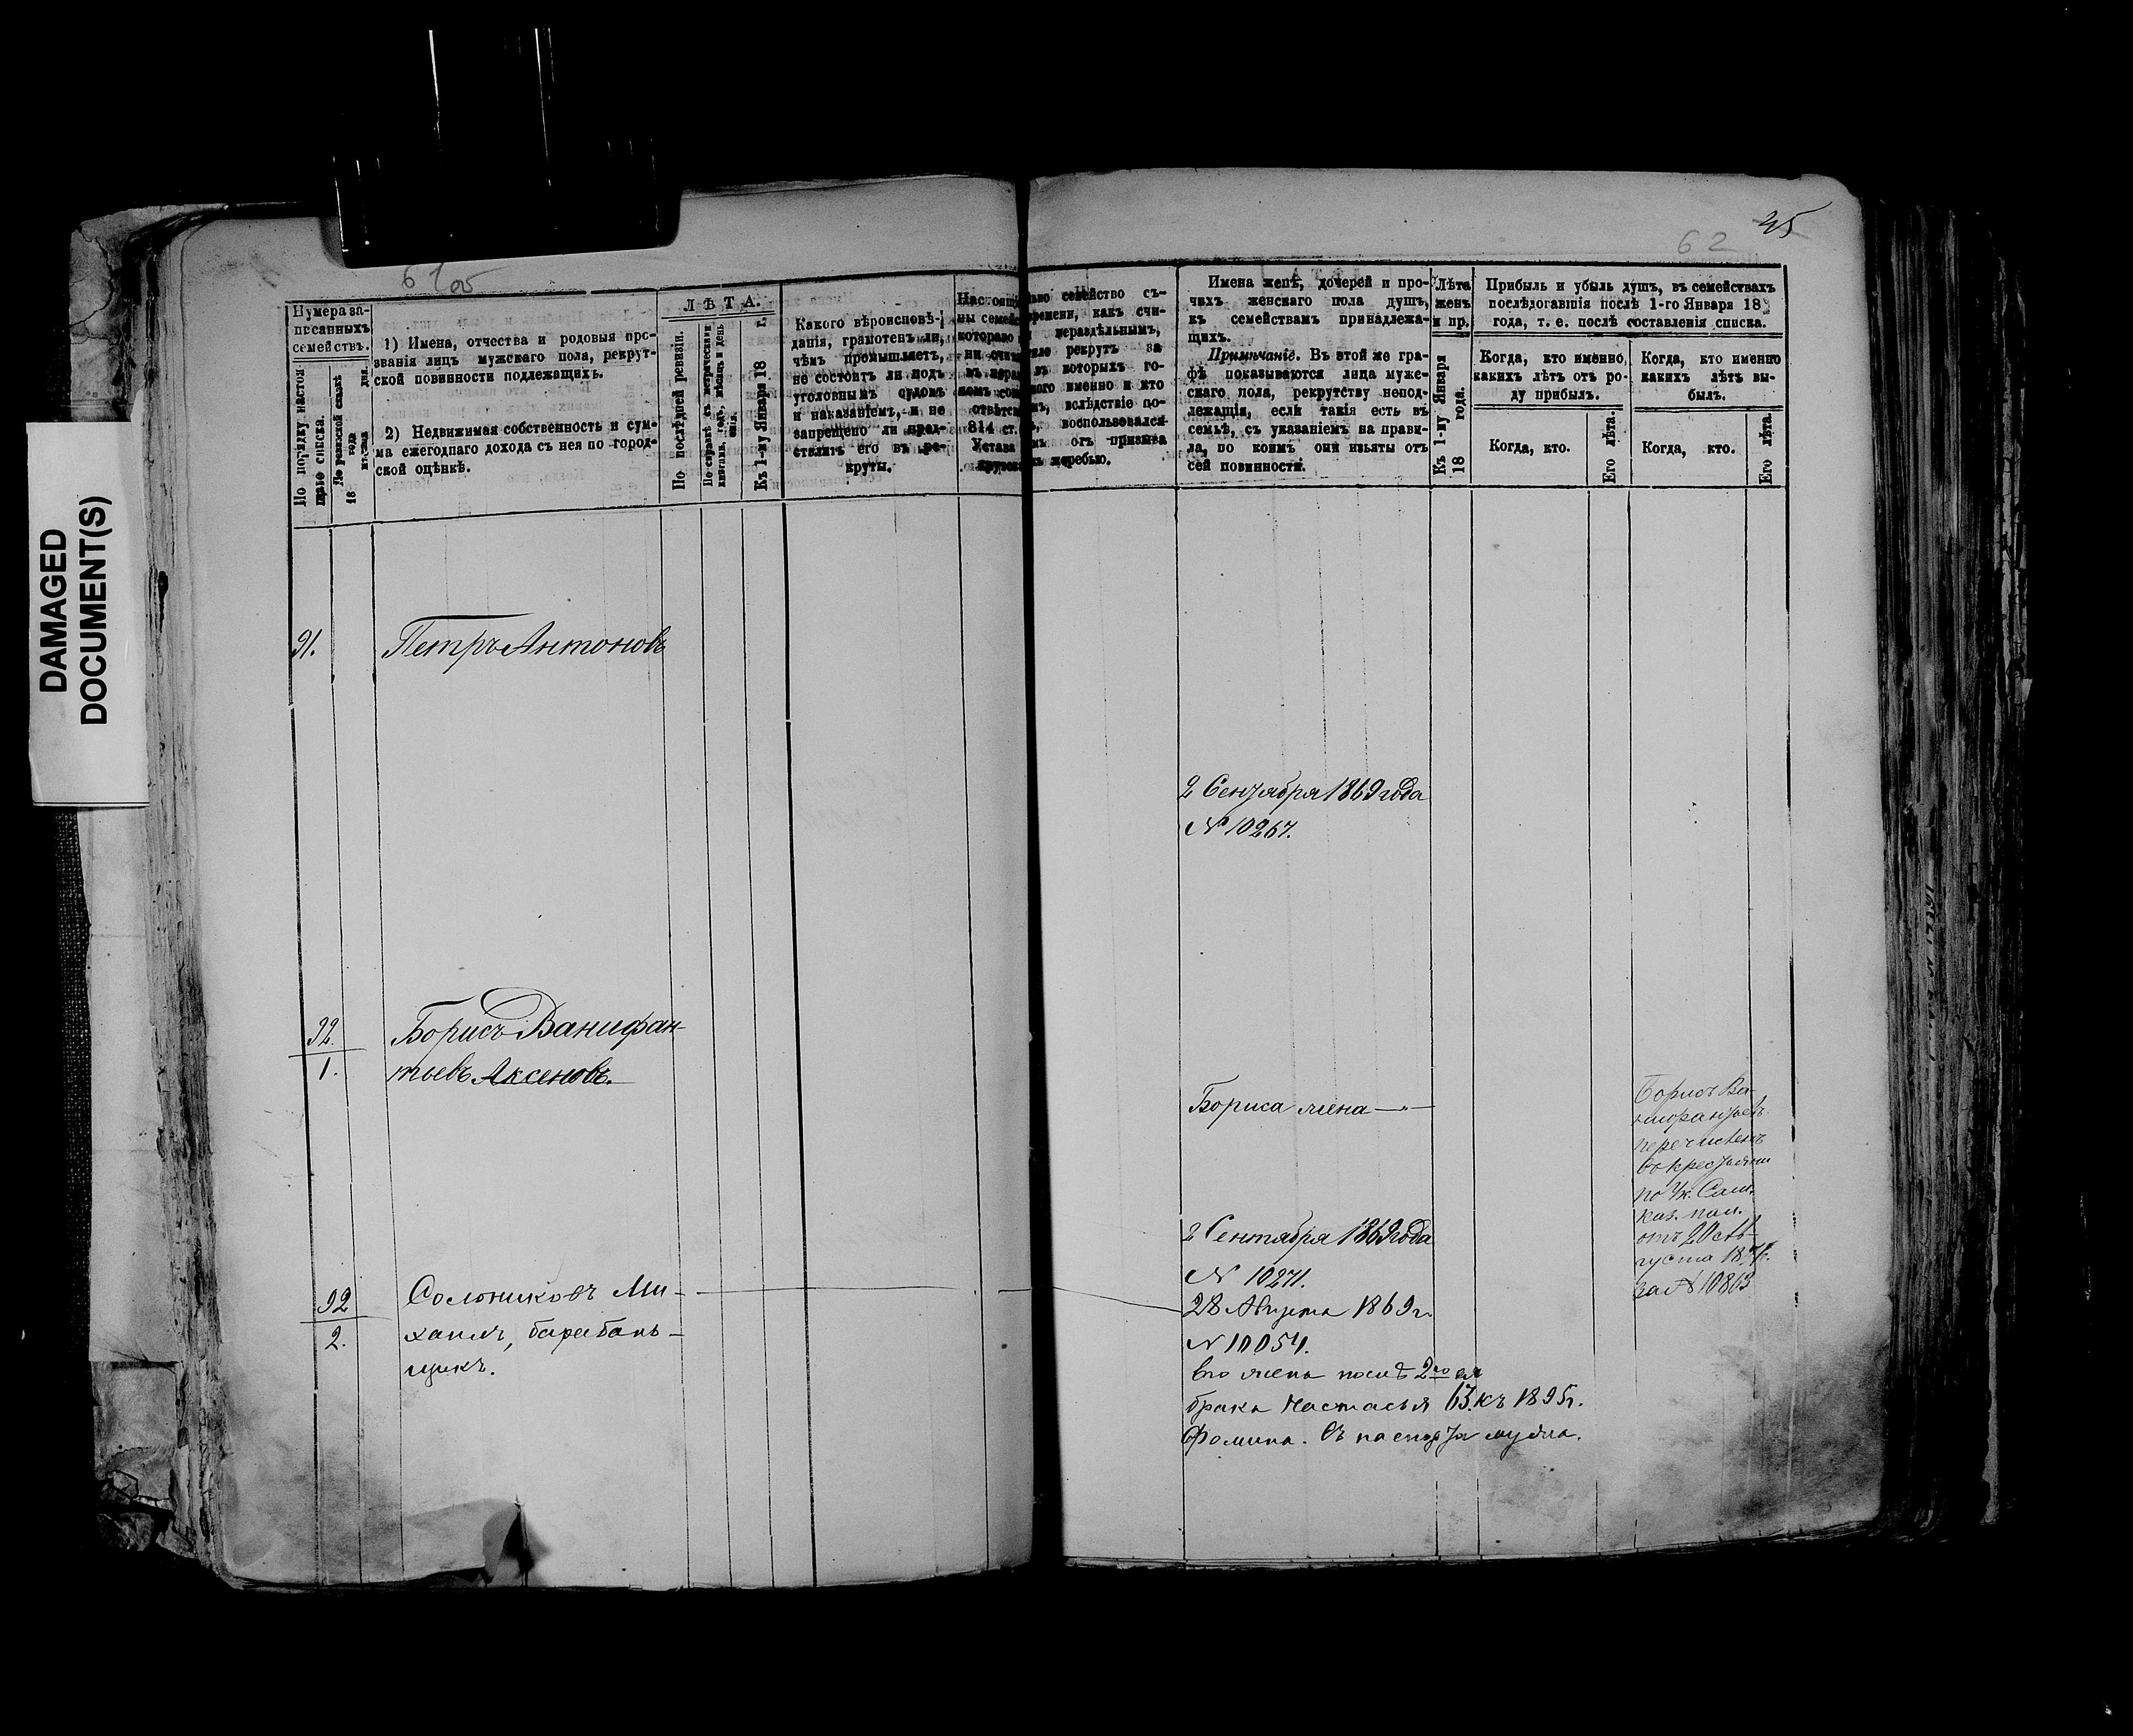 DAMAGED
DOCUMENT(S)
61
62
45
Нумера за-
писанныхъ
семействъ.
По порядку настоя-
щаго списка.
По ревизской сказкѣ
18 года
1) Имена, отчества и родовыя про-
званія лицъ мужскаго пола, рекрут-
ской повинности подлежащихъ.
2) Недвижимая собственность и сум-
ма ежегоднаго дохода съ нея по город-
ской оцѣнкѣ.
ЛѢТА.
По послѣдней ревизіи.
По справкѣ съ метрическими
книгами, годъ, мѣсяцъ и день
Къ 1-му Января 18 г.
Какого вѣроисповѣ-
данія, грамотенъ ли,
чѣмъ промышляетъ,
не состоитъ ли подъ
уголовнымъ судомъ
и наказаніемъ, и не
запрещено ли пред-
ставить его въ ре-
круты.
семейство съ-
времени, какъ счи-
нераздѣльнымъ,
рекрутъ за
въ которыхъ го-
именно и кто
вслѣдствіе по-
воспользовался
отъ призыва
жеребью.
814 ст.
Устава
Имена женъ, дочерей и про-
чихъ женскаго пола душъ,
къ семействамъ принадлежа-
щихъ.
Примѣчаніе. Въ этой же гра-
фѣ показываются лица муже-
скаго пола, рекрутству непод-
лежащія, если такія есть въ
семьѣ, съ указаніемъ на прави-
ла, по коимъ они изъяты отъ
сей повинности.
Лѣта
женъ
и пр.
Къ 1-му Января
18 года.
Прибыль и убыль душъ, въ семействахъ
послѣдовавшія послѣ 1-го Января 18
года, т. е. послѣ составленія списка.
Когда, кто именно,
какихъ лѣтъ отъ ро-
ду прибылъ.
Когда, кто именно
какихъ лѣтъ вы-
былъ.
Когда, кто.
Его лѣта.
Когда, кто.
Его лѣта.
91.
Петръ Антоновъ
2 Сентября 1869 года
№ 10267.
92.
1.
Борисъ Ванифан-
тьевъ Аксеновъ.
Бориса жена
2 Сентября 1869 года
№ 10271.
Борисъ Ва-
нифантьевъ
перечисленъ
въ крестьяне
по Ук. Сам.
каз. пал.
отъ 20 Ав-
густа 1871.
за № 10863
92
2.
Солонниковъ Ми-
хаилъ, барабан-
щикъ.
28 Августа 1869 г.
№ 10054.
его жена послѣ 2го ея
брака Настасья 63. къ 1895 г.
Фомина.